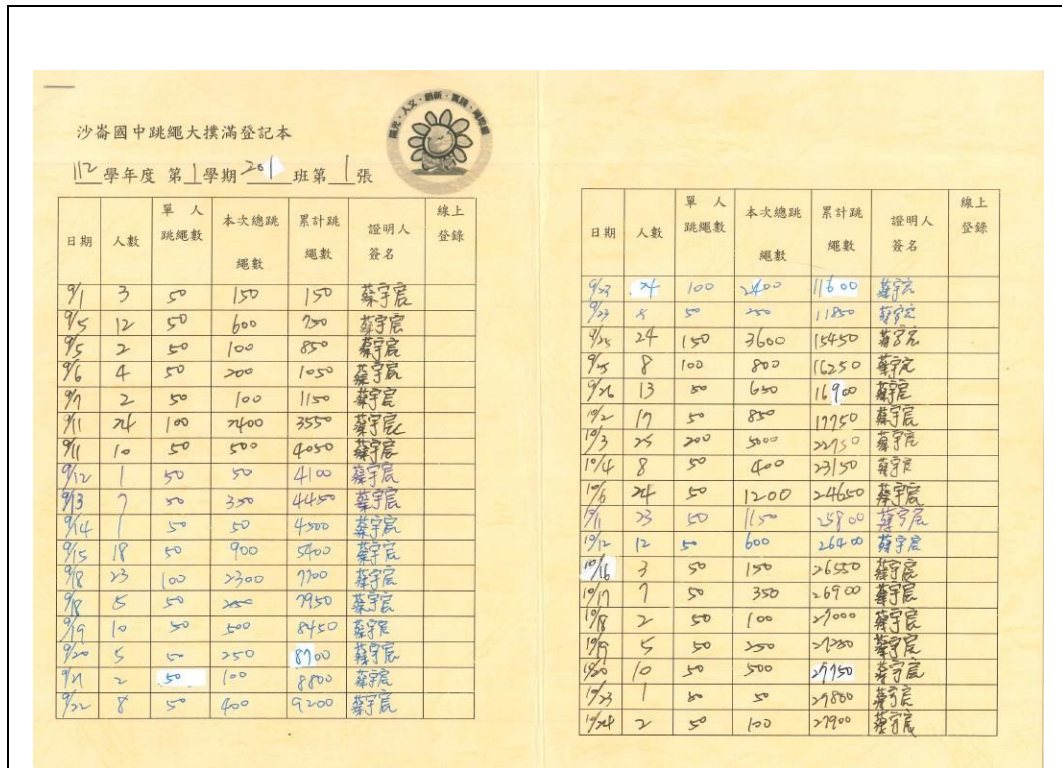 沙崙國中跳繩大撲滿登記本
112學年度 第1學期 201班第1張
日期 人數 單人跳繩數 本次總跳繩數 累計跳繩數 證明人簽名 線上登錄
9/1 3 50 150 150 蔡宇宸
9/5 12 50 600 750 蔡宇宸
9/5 2 50 100 850 蔡宇宸
9/6 4 50 200 1050 蔡宇宸
9/7 2 50 100 1150 蔡宇宸
9/11 24 100 2400 3550 蔡宇宸
9/11 10 50 500 4050 蔡宇宸
9/12 1 50 50 4100 蔡宇宸
9/13 7 50 350 4450 蔡宇宸
9/14 1 50 50 4500 蔡宇宸
9/15 18 50 900 5400 蔡宇宸
9/18 23 100 2300 7700 蔡宇宸
9/18 5 50 250 7950 蔡宇宸
9/19 10 50 500 8450 蔡宇宸
9/20 5 50 250 8700 蔡宇宸
9/21 2 50 100 8800 蔡宇宸
9/22 8 50 400 9200 蔡宇宸
日期 人數 單人跳繩數 本次總跳繩數 累計跳繩數 證明人簽名 線上登錄
9/23 24 100 2400 11600 蔡宇宸
9/23 5 50 250 11850 蔡宇宸
9/25 24 150 3600 15450 蔡宇宸
9/25 8 100 800 16250 蔡宇宸
9/26 13 50 650 16900 蔡宇宸
10/2 17 50 850 17750 蔡宇宸
10/3 25 200 5000 22750 蔡宇宸
10/4 8 50 400 23150 蔡宇宸
10/6 24 50 1200 24650 蔡宇宸
10/11 23 50 1150 25800 蔡宇宸
10/12 12 50 600 26400 蔡宇宸
10/16 3 50 150 26550 蔡宇宸
10/17 7 50 350 26900 蔡宇宸
10/18 2 50 100 27000 蔡宇宸
10/19 5 50 250 27250 蔡宇宸
10/20 10 50 500 27750 蔡宇宸
10/23 1 50 50 27800 蔡宇宸
10/24 2 50 100 27900 蔡宇宸